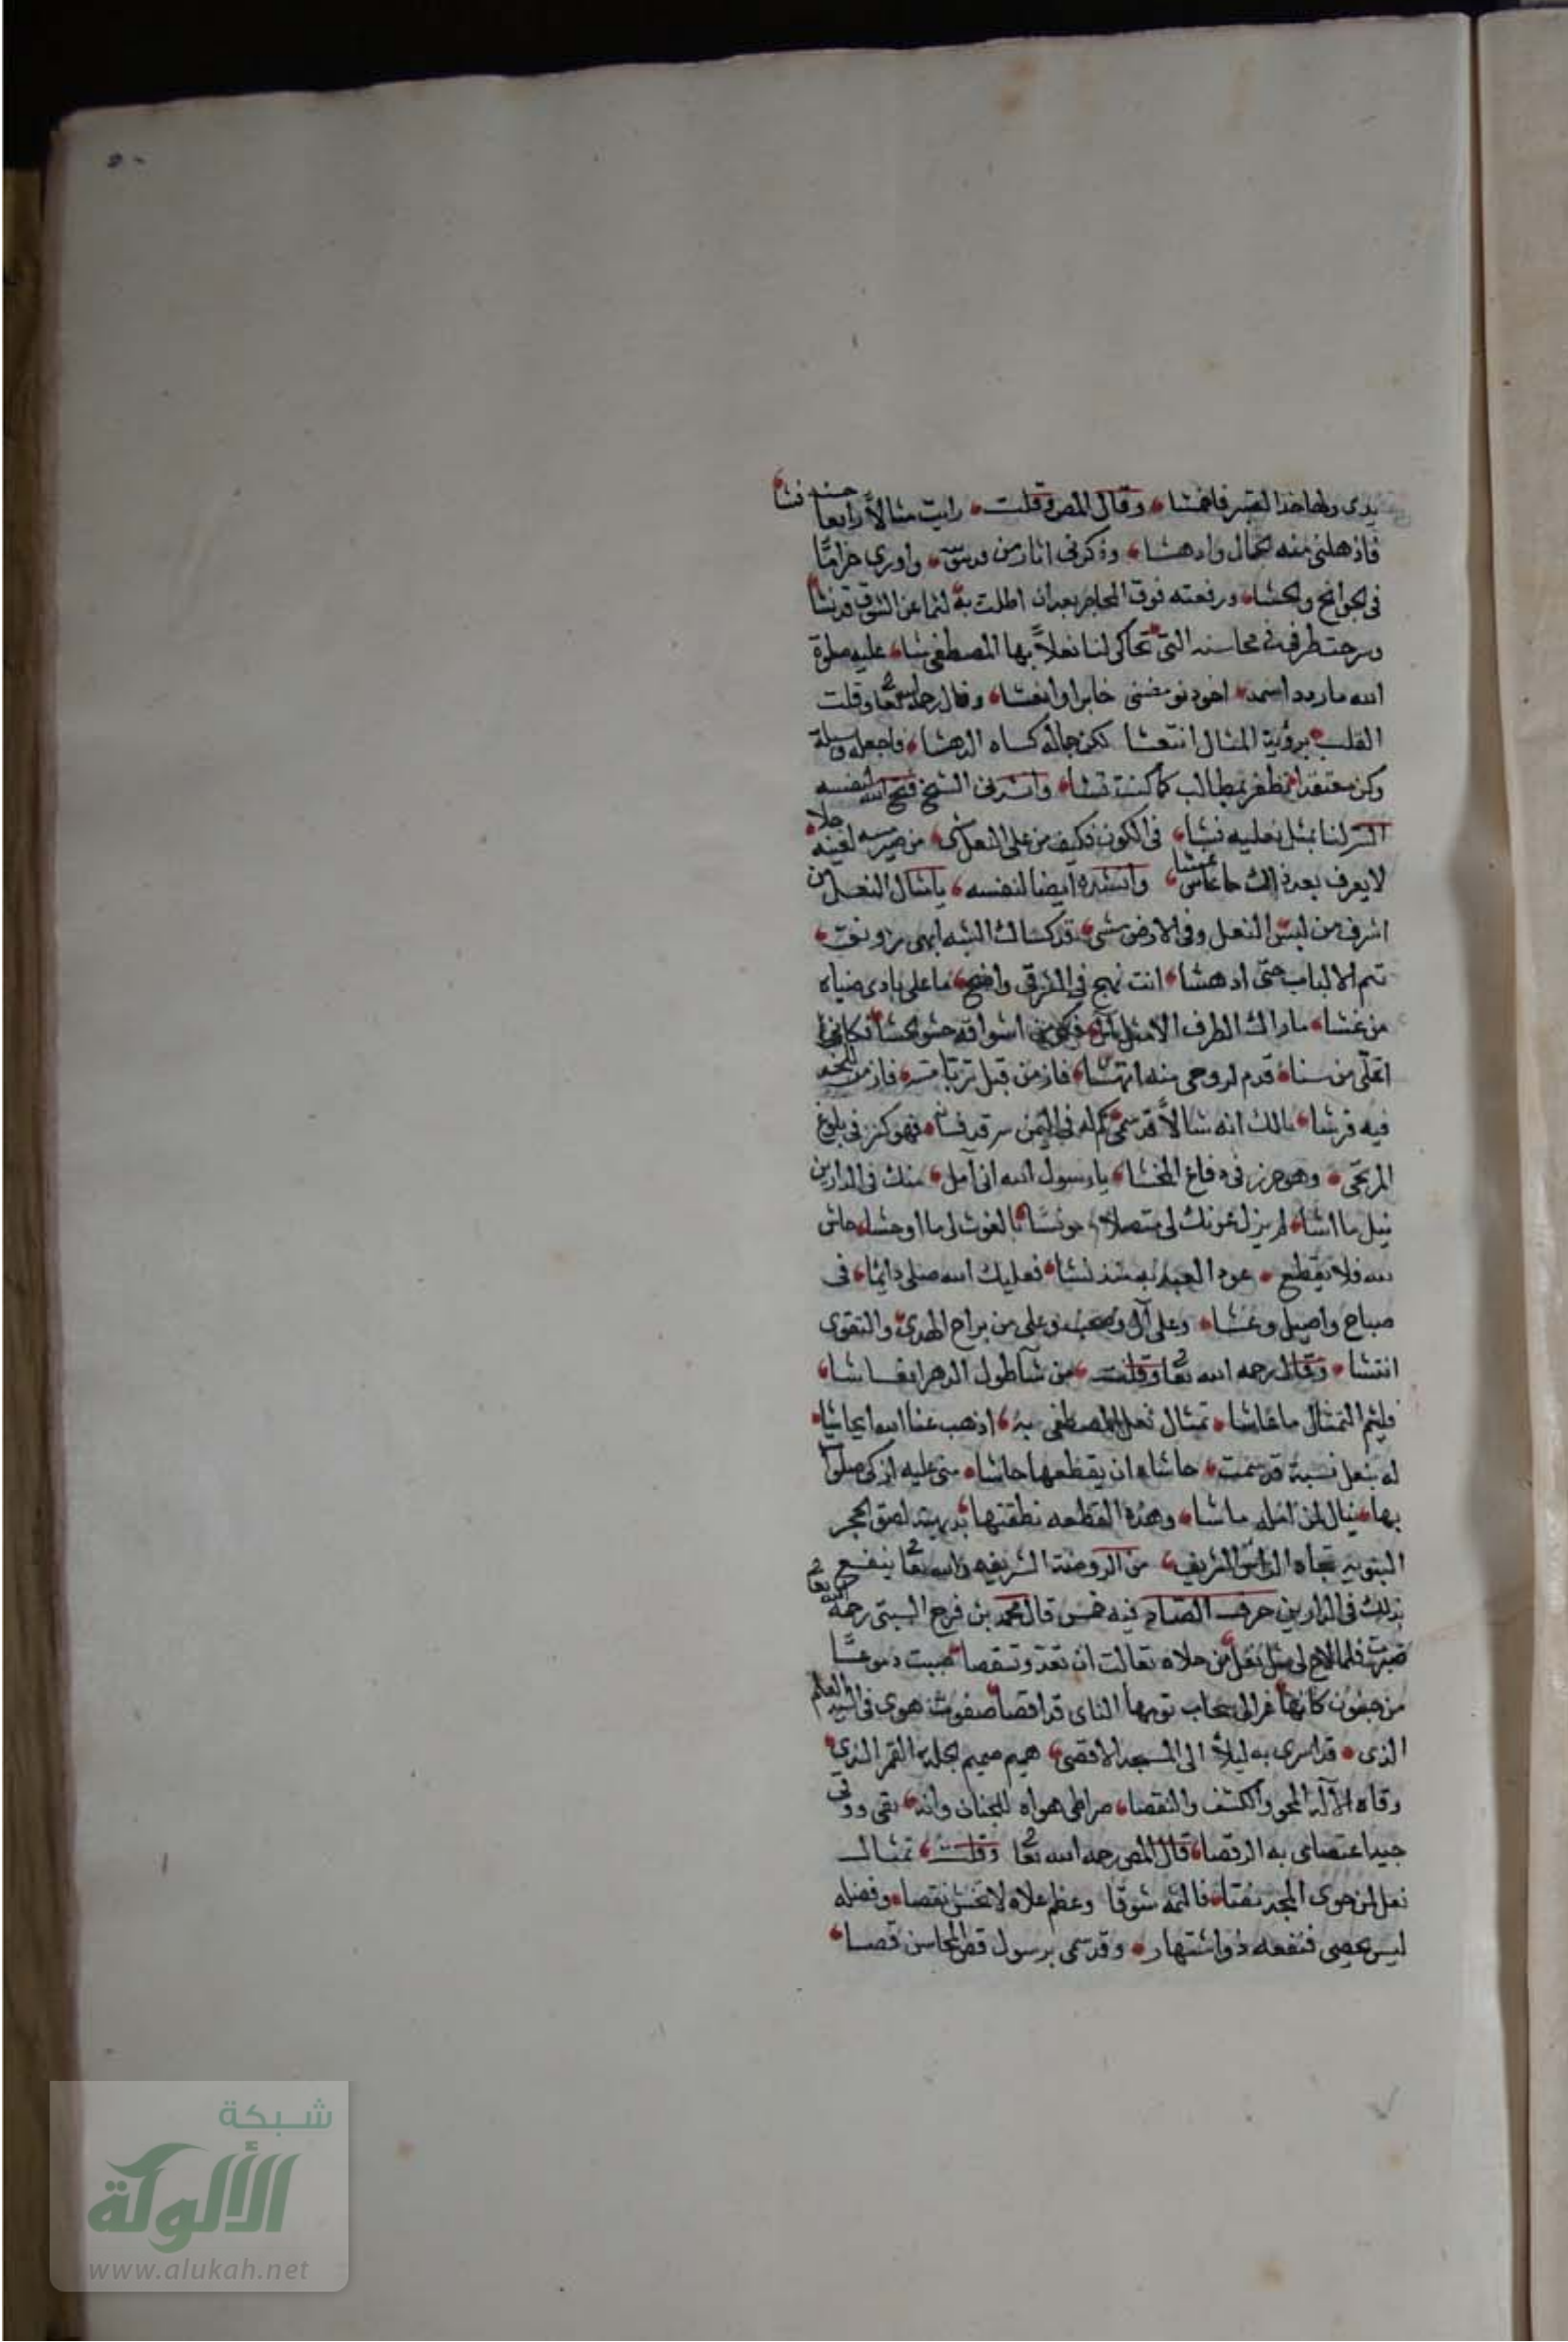 ٥٠
وقال المص وقلت رايت مثالا رايعا حسنه فشا
فاذهلني منه الجمال وادهشا وذكرني اثار من واورى غراما
في الجوانح والحشا ورفعته فوق المحاجر بعد ان اطلت به لثما عن الشوق قد نشا
وسرحت طرفي في محاسنه التي تحاكي لنا نعلا بها المصطفى مشا عليه صلوة
الله ما ردد اسمه اخو وقال رحمه الله تعا وقلت
القلب برؤية المثال انتعشا لكن جماله كساه الدهشا فاجعله وسيلة
وكن معتقدا تظفر بمطالب كما كنت تشا وانشدني الشيخ فتح الله لنفسه
لنا بمثل نعليه فشا في الكون فكيف من على النعل مشى من صيره لعينه جلا
لا يعرف بعد ذالك ما عاش عشا وانشده ايضا لنفسه يا مثال النعل من
اشرف من لبس النعل وفي الارض مشى قد كساك الشبه ابهى رونق
تيم الالباب حتى ادهشا انت نهج في الترقي واضح ما على بادي ضياه
من غشا ما راك الطرف الا مثل اشواقه حشو الحشا فكاني
اتملى من سنا قدم لروحي منه انتشا فاز من قبل تربا مسه
فيه فرشا مالك انه مثالا قد سمى كم له في اليمن سر قد فشا فهو كنز في بلوغ
المرتجى وهو حرز في دفاع المختشا يا رسول الله اني آمل منك في الدارين
نيل ما اشا لم يزل عونك لي متصلا مونسا بالغوث لي ما اوحشا حاش
لله فلا يقطع عود العبد به منذ نشا فعليك الله صلى دايما في
صباح واصيل وعشا وعلى آل وصحب وعلى من براح الهدى والتقوى
انتشا وقال رحمه الله تعا وقلت من شا طول الدهر انعاشا
فليلثم التمثال ما عاشا تمثال نعل المصطفى به اذهب عنا الله ايحاشا
له بنعل نسبة قد سمت حاشاه ان يقطعها حاشا مني عليه ازكى صلوة
بها ينال من امله ما شا وهذه القطعه نطقتها بديهة لصق الحجر
النبويه تجاه الراس الشريف من الروضة الشريفه والله تعا ينفع
بذلك في الدارين حرف الصاد فيه خمس قال محمد بن فرج السبتي رحمه الله تعا
صبرت فلما لاح لي مثل نعل من حلاه تعالت ان تعد وتستقصا صببت دموعا
من جفون كانها غرالي سحاب نومها الناى قد اقصا صفوت هوى في السيد العالم
الذي قد اسرى به ليلا الى المسجد الاقصى صميم صميم القمر الذي
وقاه الآله المحو والكشف والنقصا صراطي هواه للجنان وانه
جيد اعتصامي به الرقصا قال المص رحمه الله تعا وقلت تمثال
نعل لمن حوى المجد نصا فالثمه شوقا وعظم علاه لا تخش نقصا وفضله
ليس يحصى فنفعه ذو اشتهار وقد سمى برسول قص المحاسن قصا
شبكة
الألوكة
www.alukah.net